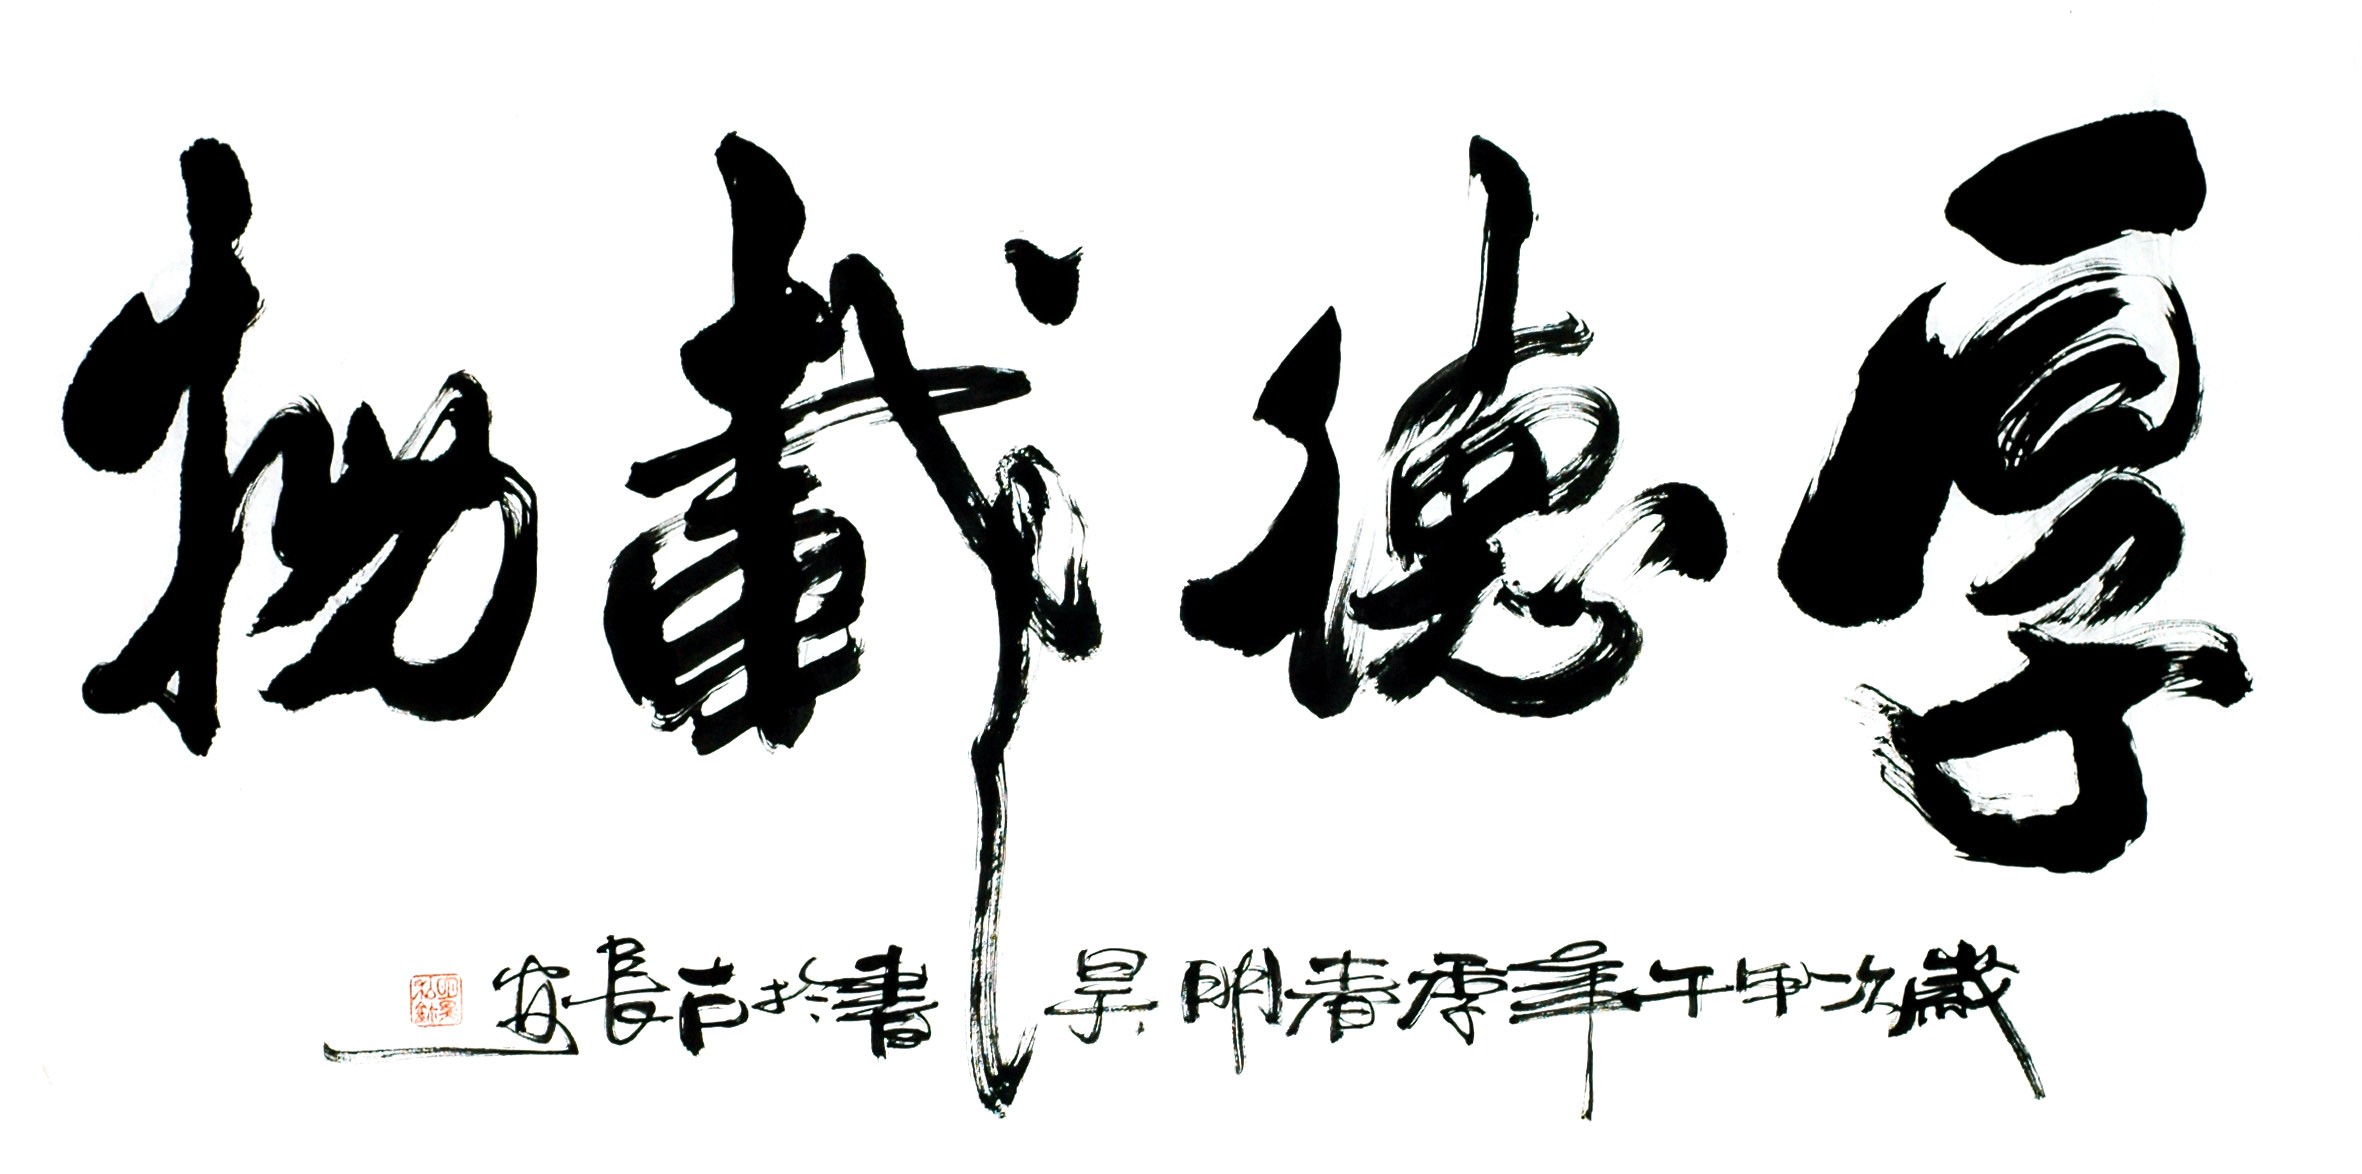 厚德載物
歲次甲午年季春明昊書於古長安